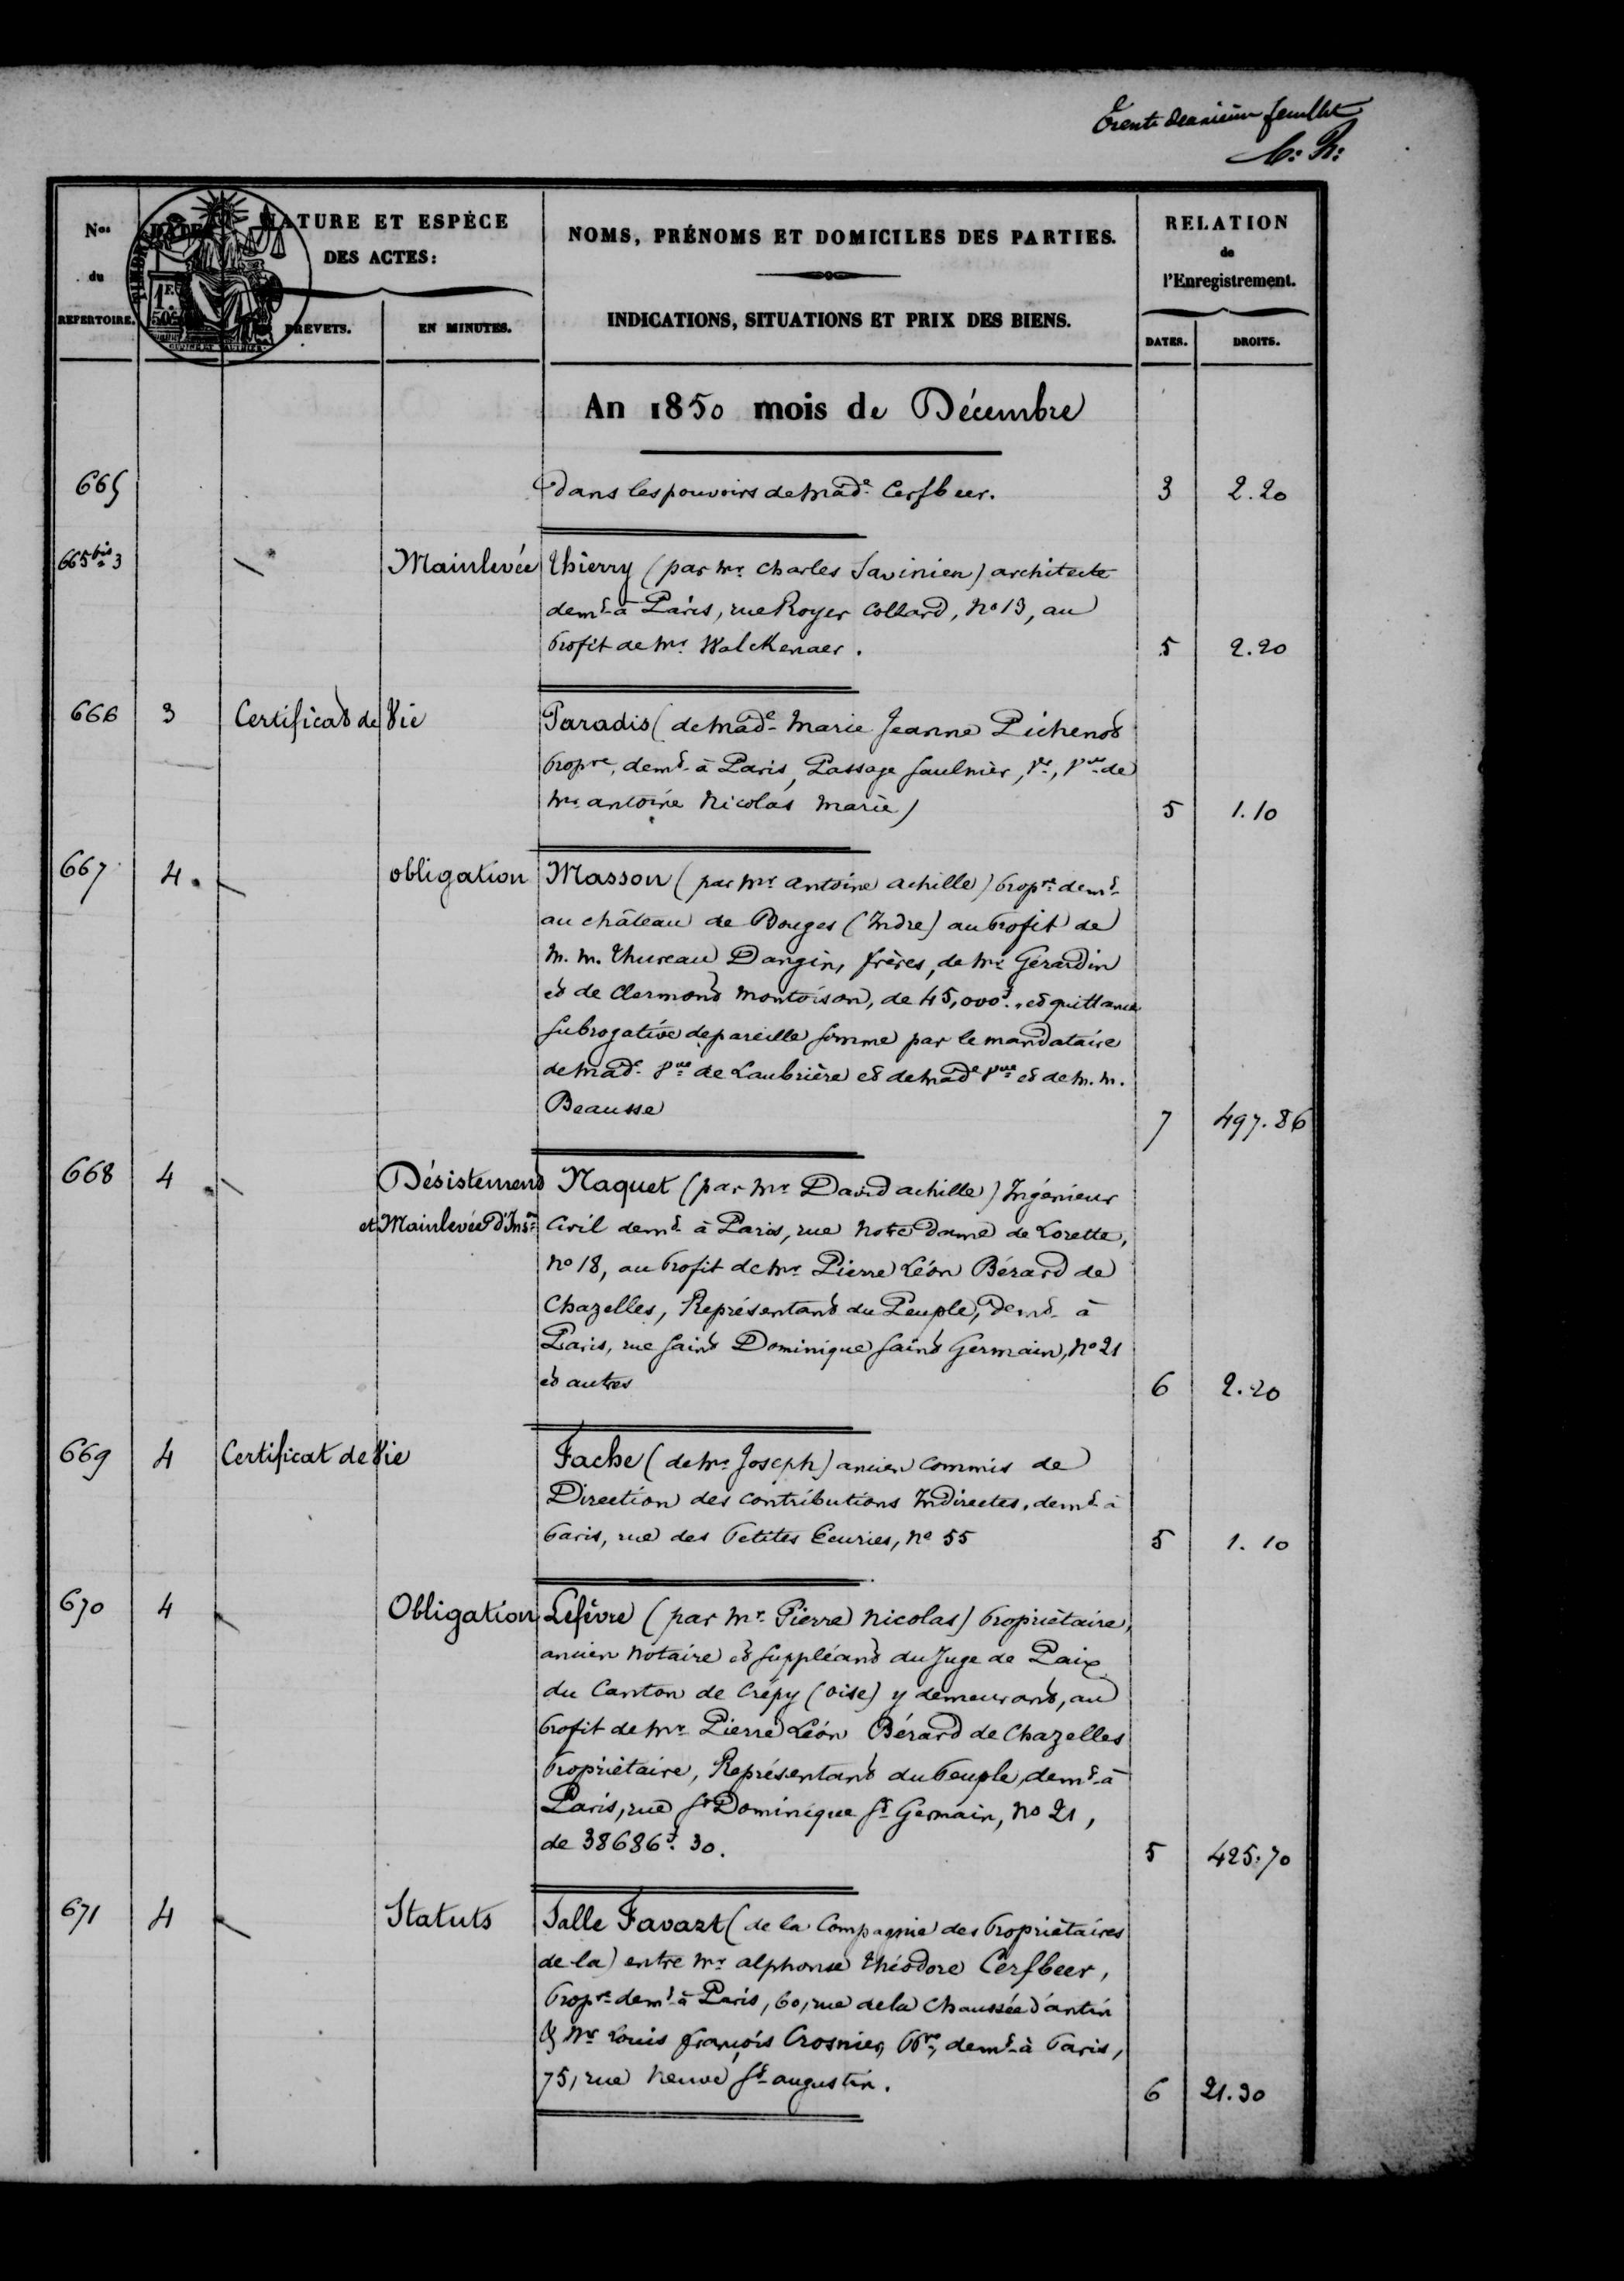 Trente deuxième feuillet
Nos du REPERTOIRE.
DATE
NATURE ET ESPÈCE DES ACTES:
BREVETS.
EN MINUTES.
NOMS, PRÉNOMS ET DOMICILES DES PARTIES.
INDICATIONS, SITUATIONS ET PRIX DES BIENS.
RELATION de l'Enregistrement.
DATES.
DROITS.
An 1850 mois de Décembre
665 dans les pouvoirs de Made Cerfbeer. 3 2.20
665 bis 3 Mainlevée Thierry (par Mr Charles Savinien) architecte
demt à Paris, rue Royer Collard, No 13, au
profit de Mr Walckenaer. 5 2.20
666 3 Certificat de Vie Paradis (de Made Marie Jeanne Pichenot
propre, demt à Paris, Passage Saulnier, Vve de
Mr antoine Nicolas Marie) 5 1.10
667 4 obligation Masson (par Mr antoine achille) propre demt
au château de Bouges (Indre) au profit de
M. M. Thureau Dangin, frères, de Mr Gérardin
et de Clermont Montoison, de 45,000f. et quittance
subrogative de pareille somme par le mandataire
de Made Vve de Laubrière et de Made Vve et de M. M.
Beausse 7 497.86
668 4 Désistement Naquet (par Mr David achille) Ingénieur
et Mainlevée d'Inson Civil demt à Paris, rue Notre Dame de Lorette,
No 18, au profit de Mr Pierre Léon Bérard de
Chazelles, Représentant du Peuple, demt à
Paris, rue Saint Dominique Saint Germain, No 21
et autres 6 2.20
669 4 Certificat de Vie Fache (de Mr Joseph) ancien Commis de
Direction des Contributions Indirectes, demt à
Paris, rue des Petites Ecuries, No 55 5 1.10
670 4 Obligation Lefèvre (par Mr Pierre Nicolas) Propriétaire,
ancien Notaire et Suppléant du Juge de Paix
du Canton de Crépy (Oise) y demeurant, au
profit de Mr Pierre Léon Bérard de Chazelles
Propriétaire, Représentant du Peuple, demt à
Paris, rue St Dominique St Germain, No 21,
de 38686f. 30. 5 425.70
671 4 Statuts Salle Favart (de la Compagnie des Propriétaires
de la) entre Mr alphonse Théodore Cerfbeer,
Propre demt à Paris, 60, rue de la Chaussée d'antin
& Mr Louis françois Crosnier, Pre, demt à Paris,
75, rue Neuve St augustin. 6 21.30